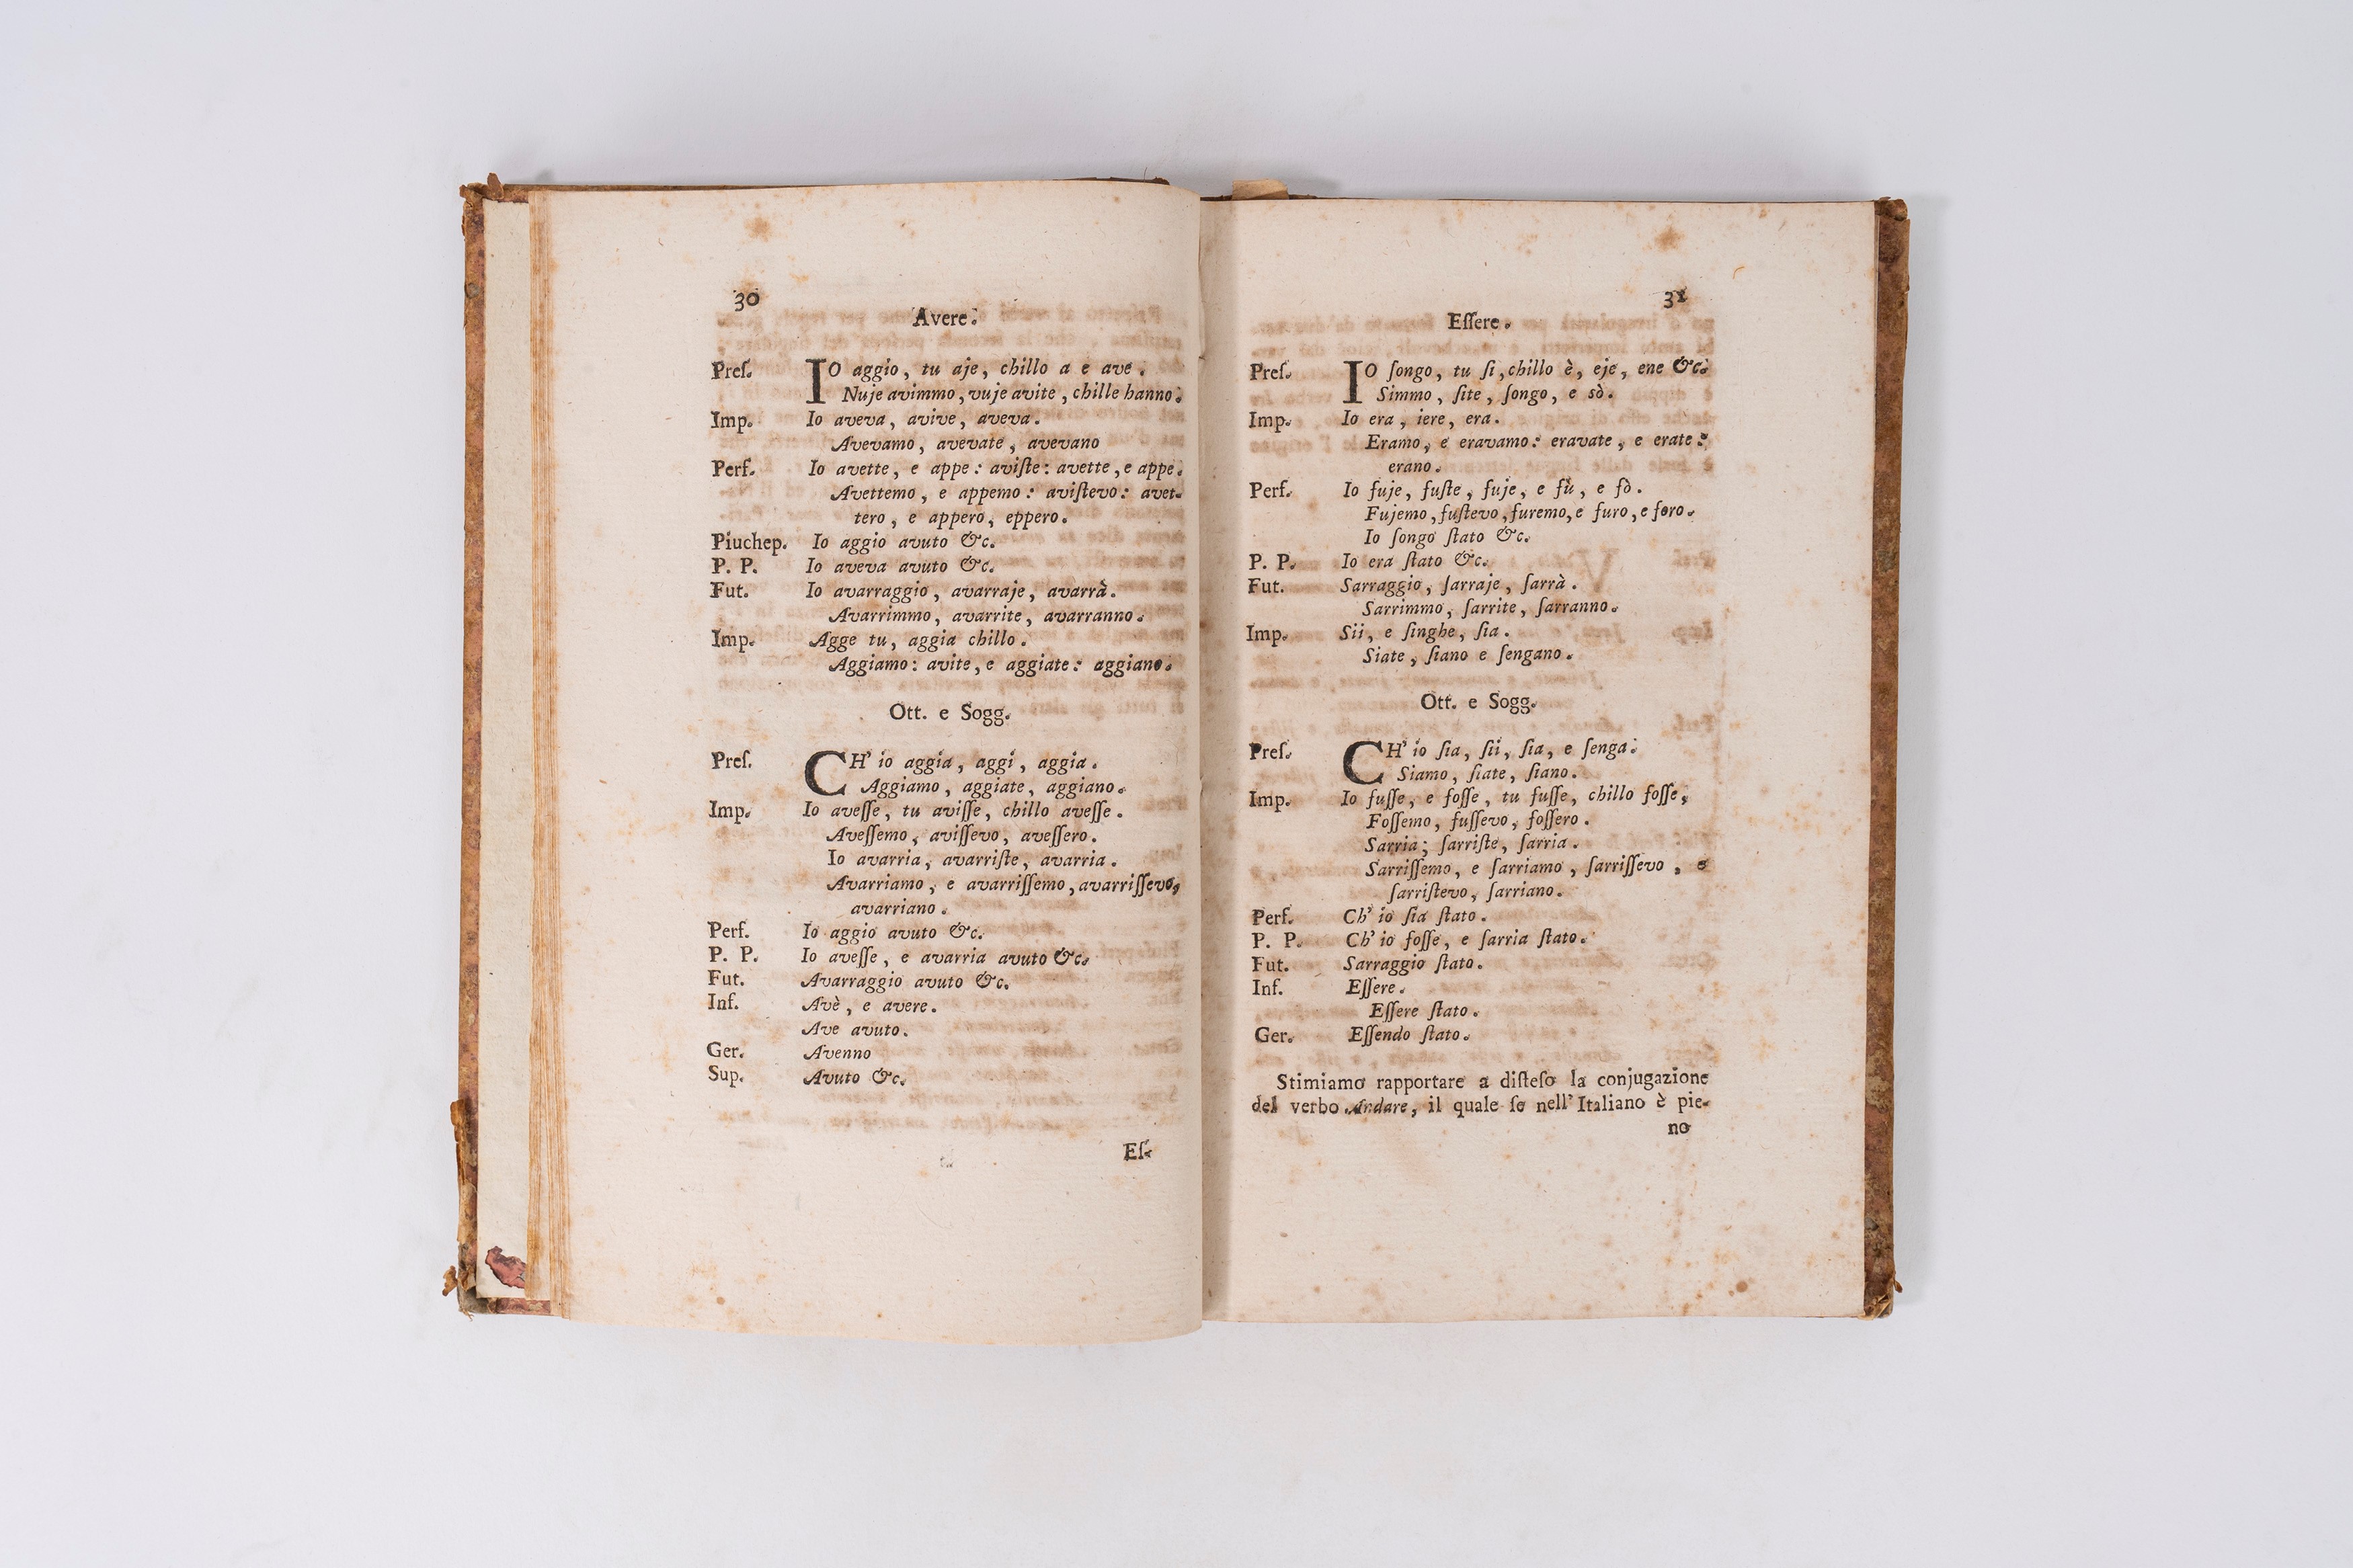 30
Avere.
Preſ. IO aggio, tu aje, chillo a e ave.
Nuje avimmo, vuje avite, chille hanno.
Imp. Io aveva, avive, aveva.
Avevamo, avevate, avevano
Perf. Io avette, e appe: aviſte: avette, e appe.
Avettemo, e appemo: aviſtevo: avet-
tero, e appero, eppero.
Piuchep. Io aggio avuto &c.
P. P. Io aveva avuto &c.
Fut. Io avarraggio, avarraje, avarrà.
Avarrimmo, avarrite, avarranno.
Imp. Agge tu, aggia chillo.
Aggiamo: avite, e aggiate: aggiano.
Ott. e Sogg.
Preſ. CH' io aggia, aggi, aggia.
Aggiamo, aggiate, aggiano.
Imp. Io aveſſe, tu aviſſe, chillo aveſſe.
Aveſſemo, aviſſevo, aveſſero.
Io avarria, avarriſte, avarria.
Avarriamo, e avarriſſemo, avarriſſevo,
avarriano.
Perf. Io aggio avuto &c.
P. P. Io aveſſe, e avarria avuto &c.
Fut. Avarraggio avuto &c.
Inf. Avè, e avere.
Ave avuto.
Ger. Avenno
Sup. Avuto &c.
Eſ-
31
Eſſere.
Preſ. IO ſongo, tu ſi, chillo è, eje, ene &c.
Simmo, ſite, ſongo, e sò.
Imp. Io era, iere, era.
Eramo, e eravamo: eravate, e erate:
erano.
Perf. Io fuje, fuſte, fuje, e fù, e fò.
Fujemo, fuſtevo, furemo, e furo, e foro.
Io ſongo ſtato &c.
P. P. Io era ſtato &c.
Fut. Sarraggio, ſarraje, ſarrà.
Sarrimmo, ſarrite, ſarranno.
Imp. Sii, e ſinghe, ſia.
Siate, ſiano e ſengano.
Ott. e Sogg.
Preſ. CH' io ſia, ſii, ſia, e ſenga.
Siamo, ſiate, ſiano.
Imp. Io fuſſe, e foſſe, tu fuſſe, chillo foſſe,
Foſſemo, fuſſevo, foſſero.
Sarria; ſarriſte, ſarria.
Sarriſſemo, e ſarriamo, ſarriſſevo, e
ſarriſtevo, ſarriano.
Perf. Ch' io ſia ſtato.
P. P. Ch' io foſſe, e ſarria ſtato.
Fut. Sarraggio ſtato.
Inf. Eſſere.
Eſſere ſtato.
Ger. Eſſendo ſtato.
Stimiamo rapportare a diſteſo la conjugazione
del verbo Andare, il quale ſo nell' Italiano è pie-
no